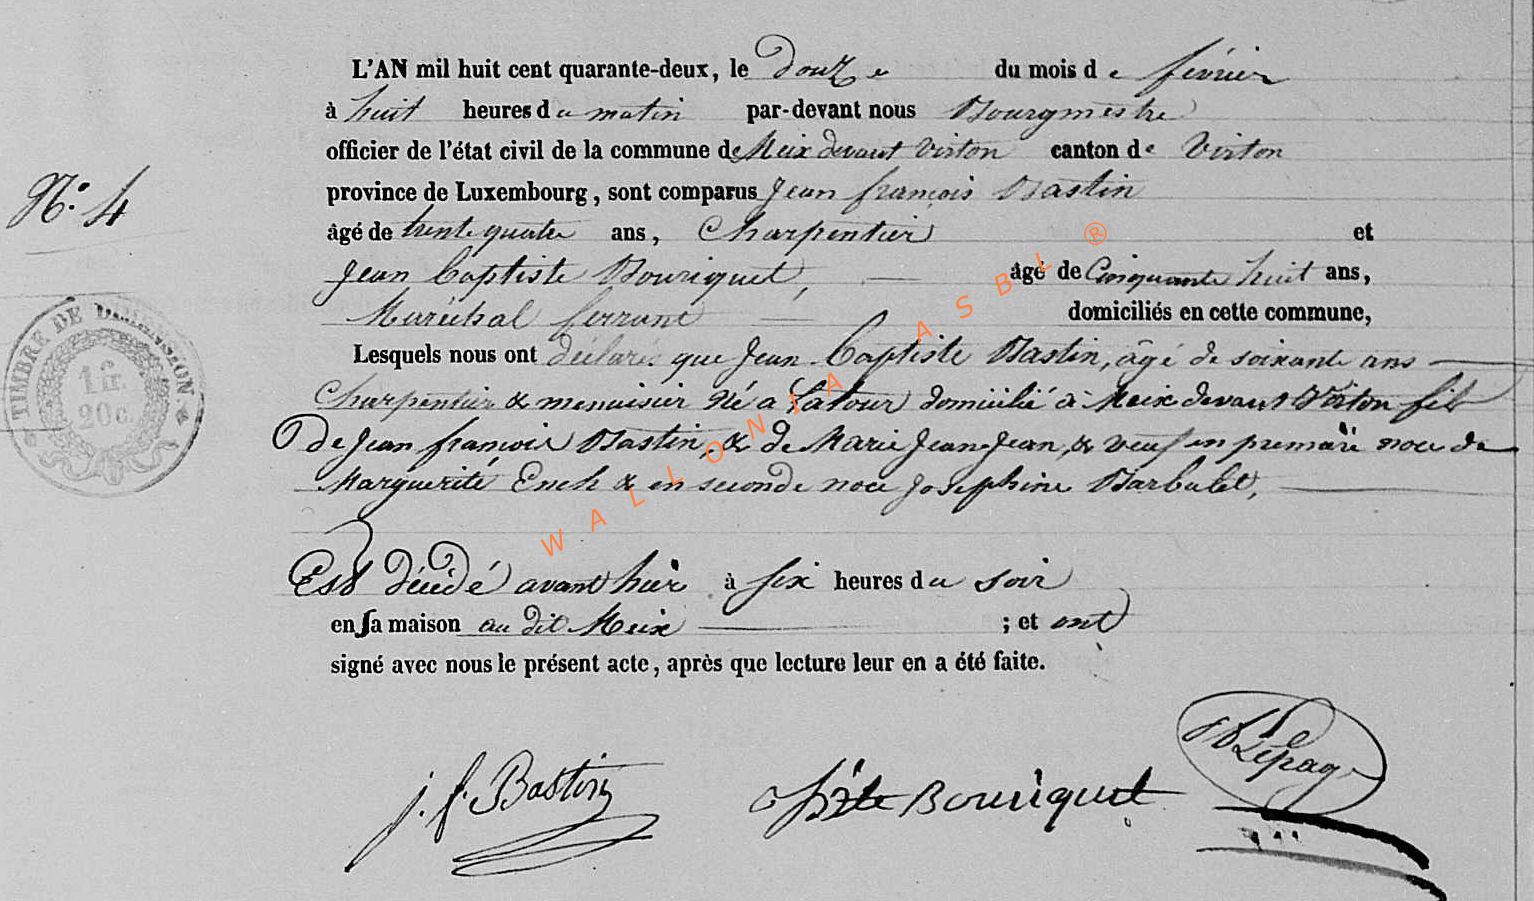 L'AN mil huit cent quarante-deux, le douze du mois de février
à huit heures du matin par-devant nous Bourgmestre
officier de l'état civil de la commune de Meix devant Virton canton de Virton
province de Luxembourg, sont comparus Jean françois Bastin
N.º 4
âgé de trente quatre ans, Charpentier et
Jean Baptiste Bouriquet, âgé de Cinquante huit ans,
Maréchal ferrant domiciliés en cette commune,
Lesquels nous ont déclaré que Jean Baptiste Bastin, âgé de soixante ans
Charpentier & menuisier Né a Latour domicilié à Meix devant Virton fils
De Jean françois Bastin, & de Marie Jean-Jean, & veuf en premare noce de
Marguerite Ench & en seconde noce Josephine Barbulet,
Est décédé avant hier à six heures du soir
en sa maison au dit Meix ; et ont
signé avec nous le présent acte, après que lecture leur en a été faite.
TIMBRE DE DIMENSION.
1 fr.
20 c.
j. f. Bastin Bouriquet Lepage
WALLONIA ASBL ®